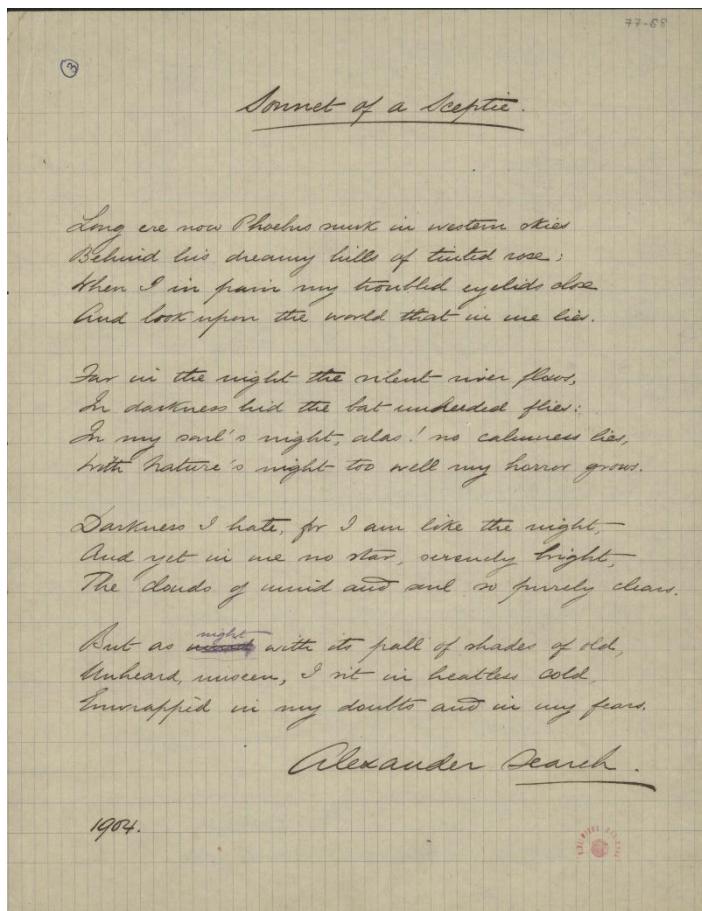 77-68
3
Sonnet of a Sceptic.
Long ere now Phoebus sunk in western skies
Behind his dreamy hills of tinted rose;
When I in pain my troubled eyelids close
And look upon the world that in me lies.
Far in the night the silent river flows,
In darkness hid the bat unheeded flies:
In my soul's night, alas! no calmness lies,
With Nature's night too well my horror grows.
Darkness I hate, for I am like the night,
And yet in me no star, serenely bright,
The clouds of mind and soul so purely clears.
night
But as with its pall of shades of old,
Unheard, unseen, I sit in heatless cold,
Enwrappèd in my doubts and in my fears.
Alexander Search.
1904.